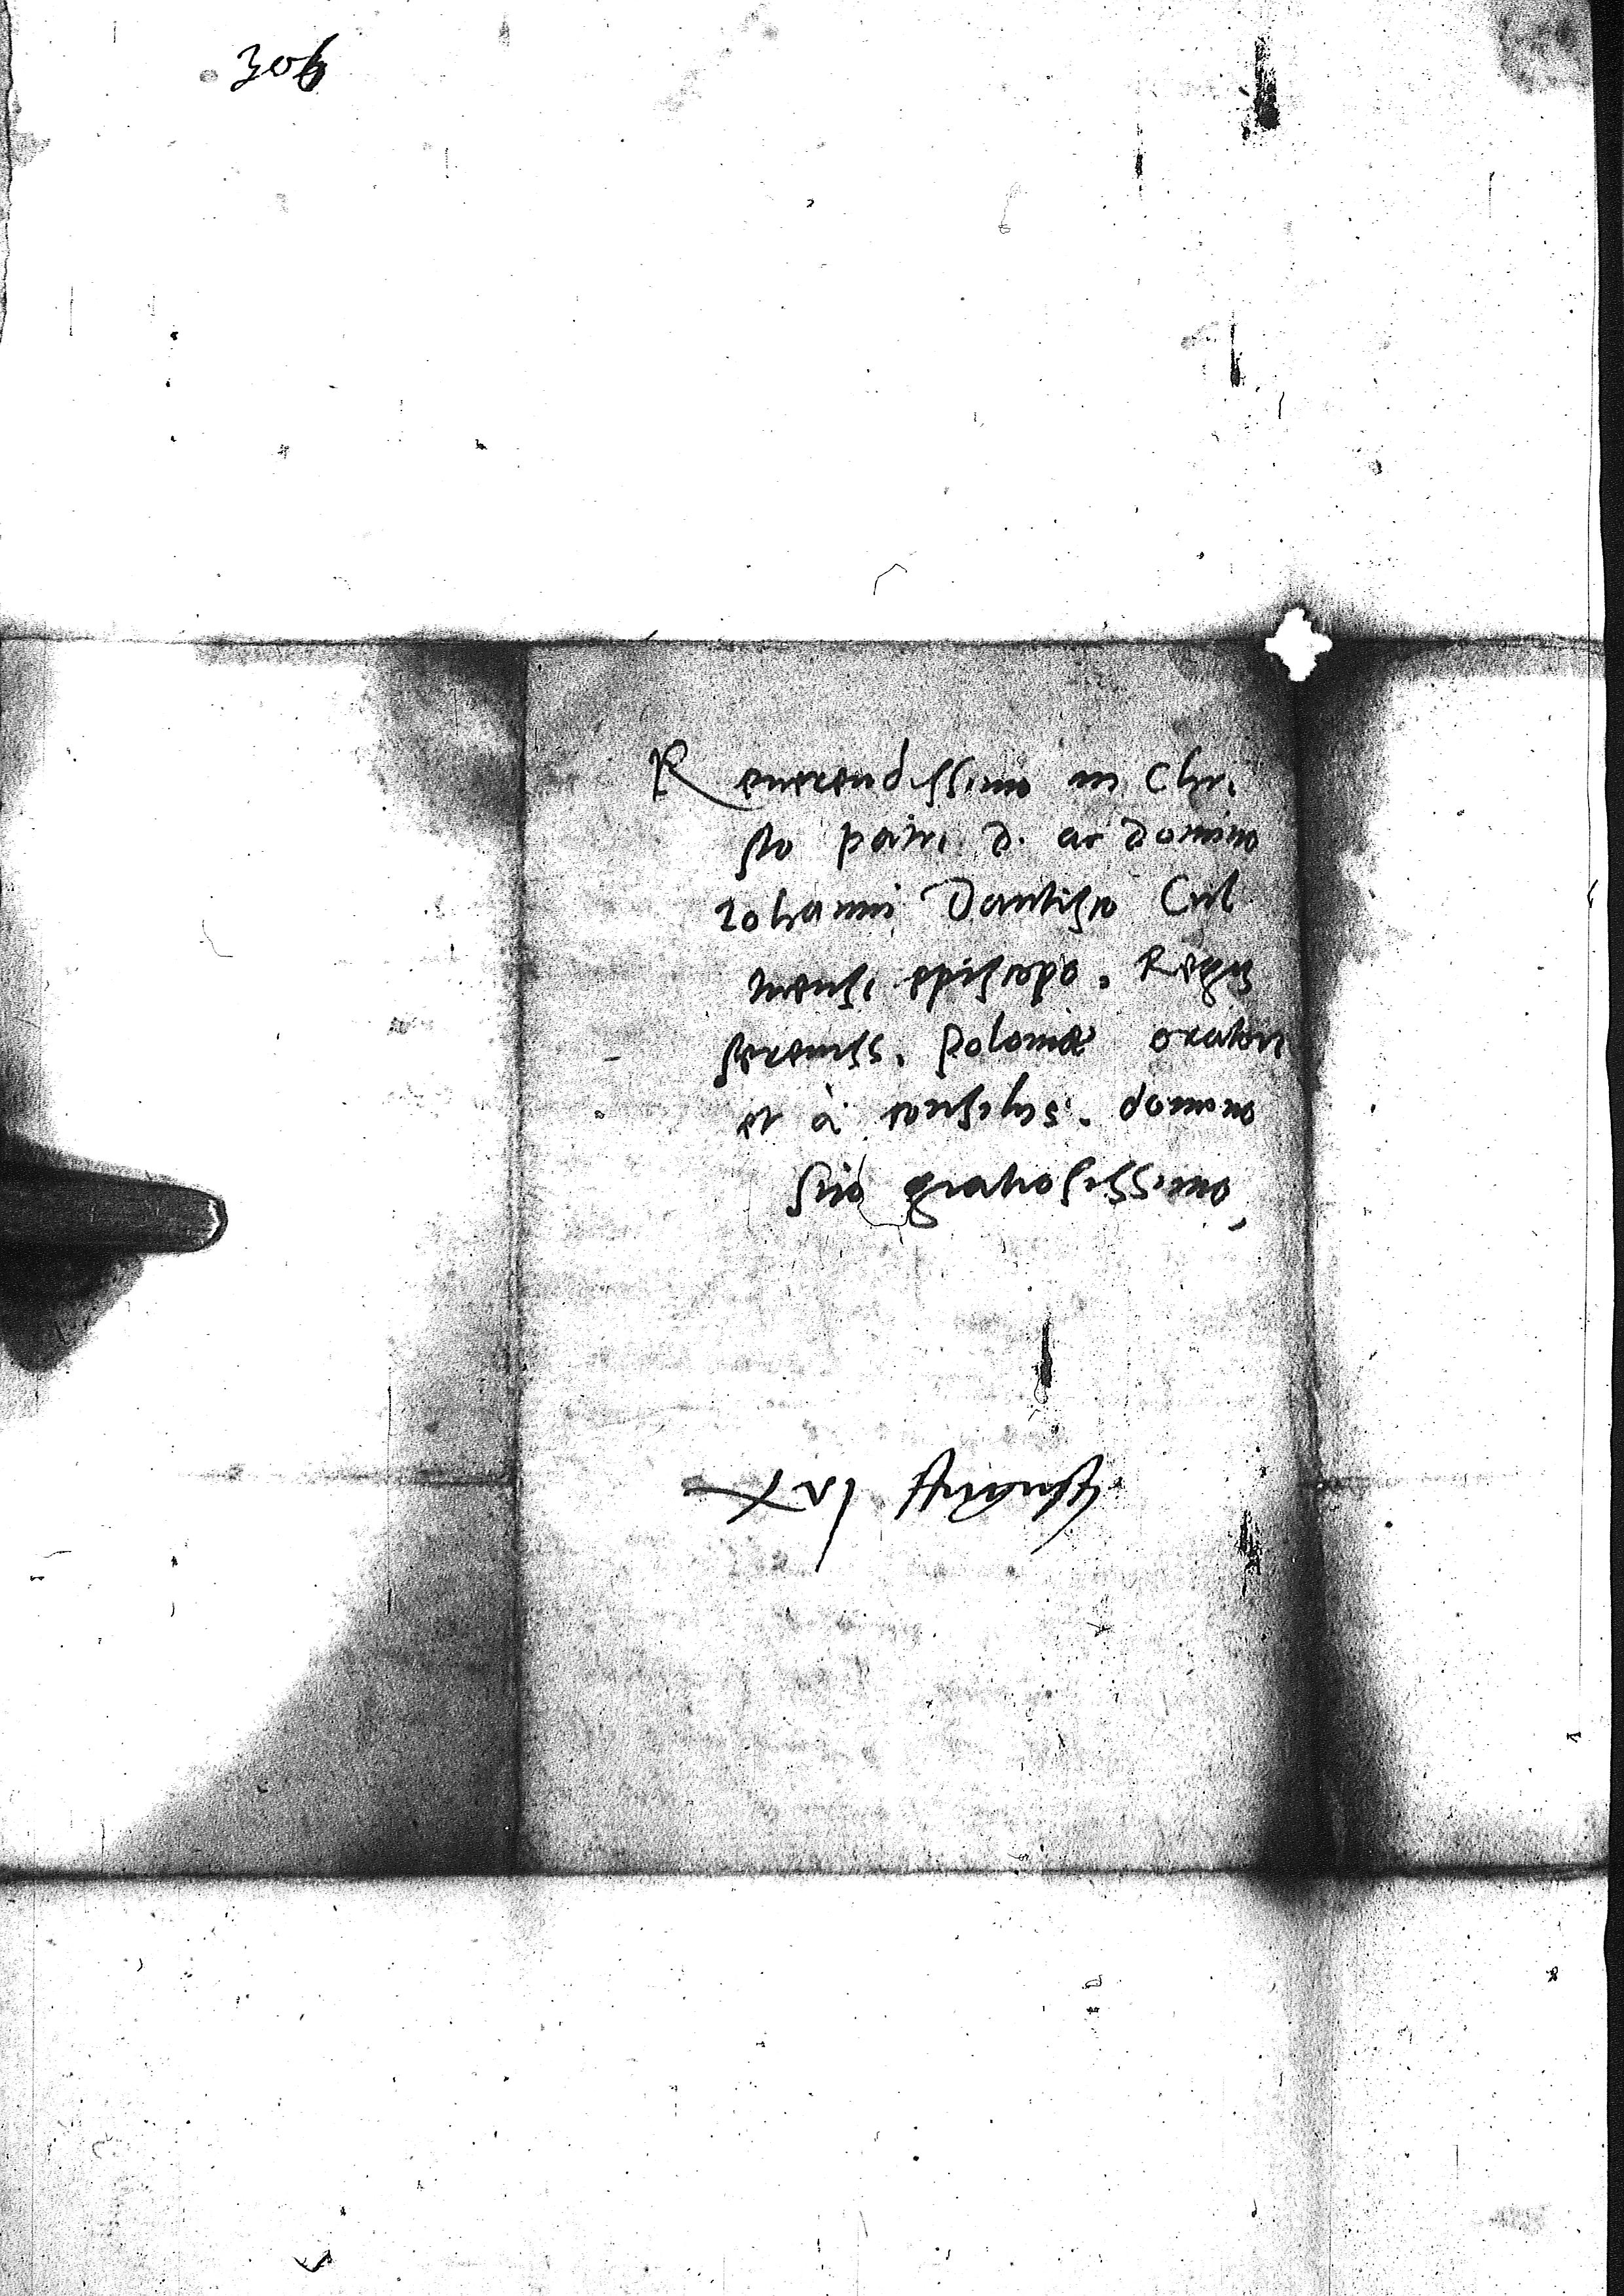 306
Reuerendissimo in Chri
sto patri d. ac domino
Iohanni Dantisco Cul
mensi episcopo. Regis
sereniss. Poloniæ oratori
et à consilijs. domino
suo gratiosissimo,